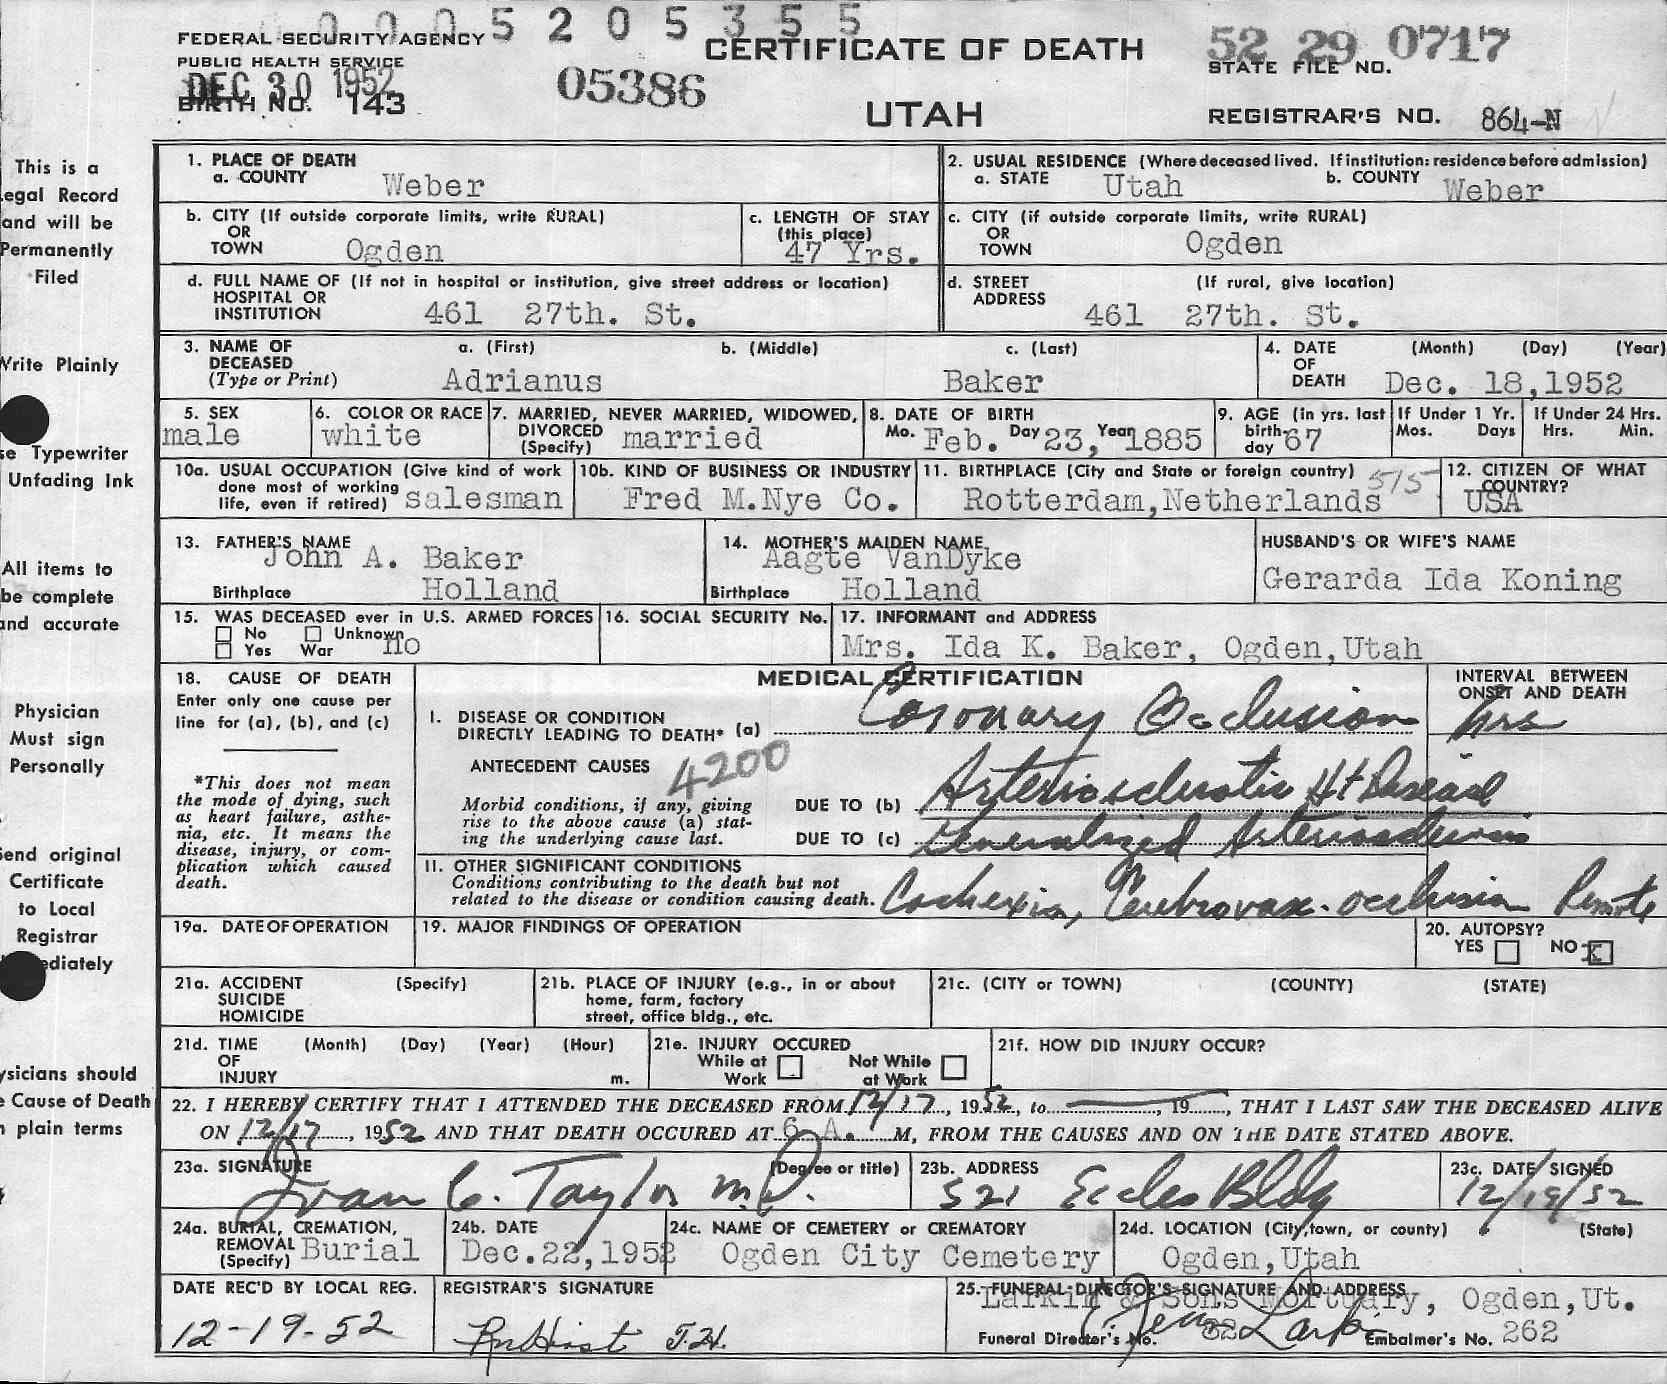 0 0 0 5 2 0 5 3 5 5
FEDERAL SECURITY AGENCY
PUBLIC HEALTH SERVICE
DEC 30 1952
BIRTH NO. 143
05386
CERTIFICATE OF DEATH
UTAH
52 29 0717
STATE FILE NO.
REGISTRAR'S NO. 864-N
This is a
egal Record
and will be
Permanently
Filed
Write Plainly
se Typewriter
Unfading Ink
All items to
be complete
and accurate
Physician
Must sign
Personally
Send original
Certificate
to Local
Registrar
ediately
ysicians should
e Cause of Death
n plain terms
1. PLACE OF DEATH
a. COUNTY Weber
2. USUAL RESIDENCE (Where deceased lived. If institution: residence before admission)
a. STATE Utah b. COUNTY Weber
b. CITY (If outside corporate limits, write RURAL)
OR
TOWN Ogden
c. LENGTH OF STAY
(this place)
47 Yrs.
c. CITY (if outside corporate limits, write RURAL)
OR
TOWN Ogden
d. FULL NAME OF (If not in hospital or institution, give street address or location)
HOSPITAL OR
INSTITUTION 461 27th. St.
d. STREET (If rural, give location)
ADDRESS 461 27th. St.
3. NAME OF a. (First) b. (Middle) c. (Last)
DECEASED
(Type or Print) Adrianus Baker
4. DATE (Month) (Day) (Year)
OF
DEATH Dec. 18,1952
5. SEX
male
6. COLOR OR RACE
white
7. MARRIED, NEVER MARRIED, WIDOWED,
DIVORCED
(Specify) married
8. DATE OF BIRTH
Mo. Feb. Day 23, Year 1885
9. AGE (in yrs. last
birth-
day 67
If Under 1 Yr.
Mos. Days
If Under 24 Hrs.
Hrs. Min.
10a. USUAL OCCUPATION (Give kind of work
done most of working
life, even if retired) salesman
10b. KIND OF BUSINESS OR INDUSTRY
Fred M.Nye Co.
11. BIRTHPLACE (City and State or foreign country) 515
Rotterdam,Netherlands
12. CITIZEN OF WHAT
COUNTRY?
USA
13. FATHER'S NAME
John A. Baker
Birthplace Holland
14. MOTHER'S MAIDEN NAME
Aagte VanDyke
Birthplace Holland
HUSBAND'S OR WIFE'S NAME
Gerarda Ida Koning
15. WAS DECEASED ever in U.S. ARMED FORCES
No Unknown
Yes War no
16. SOCIAL SECURITY No.
17. INFORMANT and ADDRESS
Mrs. Ida K. Baker, Ogden,Utah
18. CAUSE OF DEATH
Enter only one cause per
line for (a), (b), and (c)
*This does not mean
the mode of dying, such
as heart failure, asthe-
nia, etc. It means the
disease, injury, or com-
plication which caused
death.
MEDICAL CERTIFICATION
INTERVAL BETWEEN
ONSET AND DEATH
I. DISEASE OR CONDITION
DIRECTLY LEADING TO DEATH* (a) Coronary Occlusion hrs
ANTECEDENT CAUSES 4200
Morbid conditions, if any, giving
rise to the above cause (a) stat-
ing the underlying cause last.
DUE TO (b) Arteriosclerotic Ht Disease
DUE TO (c) Generalized Arteriosclerosis
II. OTHER SIGNIFICANT CONDITIONS
Conditions contributing to the death but not
related to the disease or condition causing death. Cachexia, Cerebrovas. occlusion Remote
19a. DATE OF OPERATION
19. MAJOR FINDINGS OF OPERATION
20. AUTOPSY?
YES NO X
21a. ACCIDENT (Specify)
SUICIDE
HOMICIDE
21b. PLACE OF INJURY (e.g., in or about
home, farm, factory
street, office bldg., etc.
21c. (CITY or TOWN) (COUNTY) (STATE)
21d. TIME (Month) (Day) (Year) (Hour)
OF
INJURY m.
21e. INJURY OCCURED
While at Work
Not While at Work
21f. HOW DID INJURY OCCUR?
22. I HEREBY CERTIFY THAT I ATTENDED THE DECEASED FROM 12/17, 1952, to, 19, THAT I LAST SAW THE DECEASED ALIVE
ON 12/17, 1952 AND THAT DEATH OCCURED AT 6 A. M, FROM THE CAUSES AND ON THE DATE STATED ABOVE.
23a. SIGNATURE (Degree or title)
Ivan C. Taylor M.D.
23b. ADDRESS
521 Eccles Bldg
23c. DATE SIGNED
12/19/52
24a. BURIAL, CREMATION,
REMOVAL
(Specify) Burial
24b. DATE
Dec.22,1952
24c. NAME OF CEMETERY or CREMATORY
Ogden City Cemetery
24d. LOCATION (City, town, or county) (State)
Ogden,Utah
DATE REC'D BY LOCAL REG.
12-19-52
REGISTRAR'S SIGNATURE
25. FUNERAL DIRECTOR'S SIGNATURE AND ADDRESS
Larkin & Sons Mortuary, Ogden,Ut.
Funeral Director's No. Embalmer's No. 262